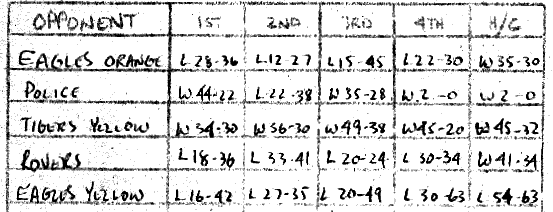 OPPONENT 1ST 2ND 3RD 4TH H/G
EAGLES ORANGE L28-36 L12-27 L15-45 L22-30 W35-30
POLICE W44-22 L22-38 W35-28 W.2-0 W2-0
TIGERS YELLOW W34-30 W36-30 W49-38 W45-20 W45-32
ROVERS L18-36 L33-41 L20-24 L30-34 W41-34
EAGLES YELLOW L16-42 L27-35 L20-49 L30-63 L54-63